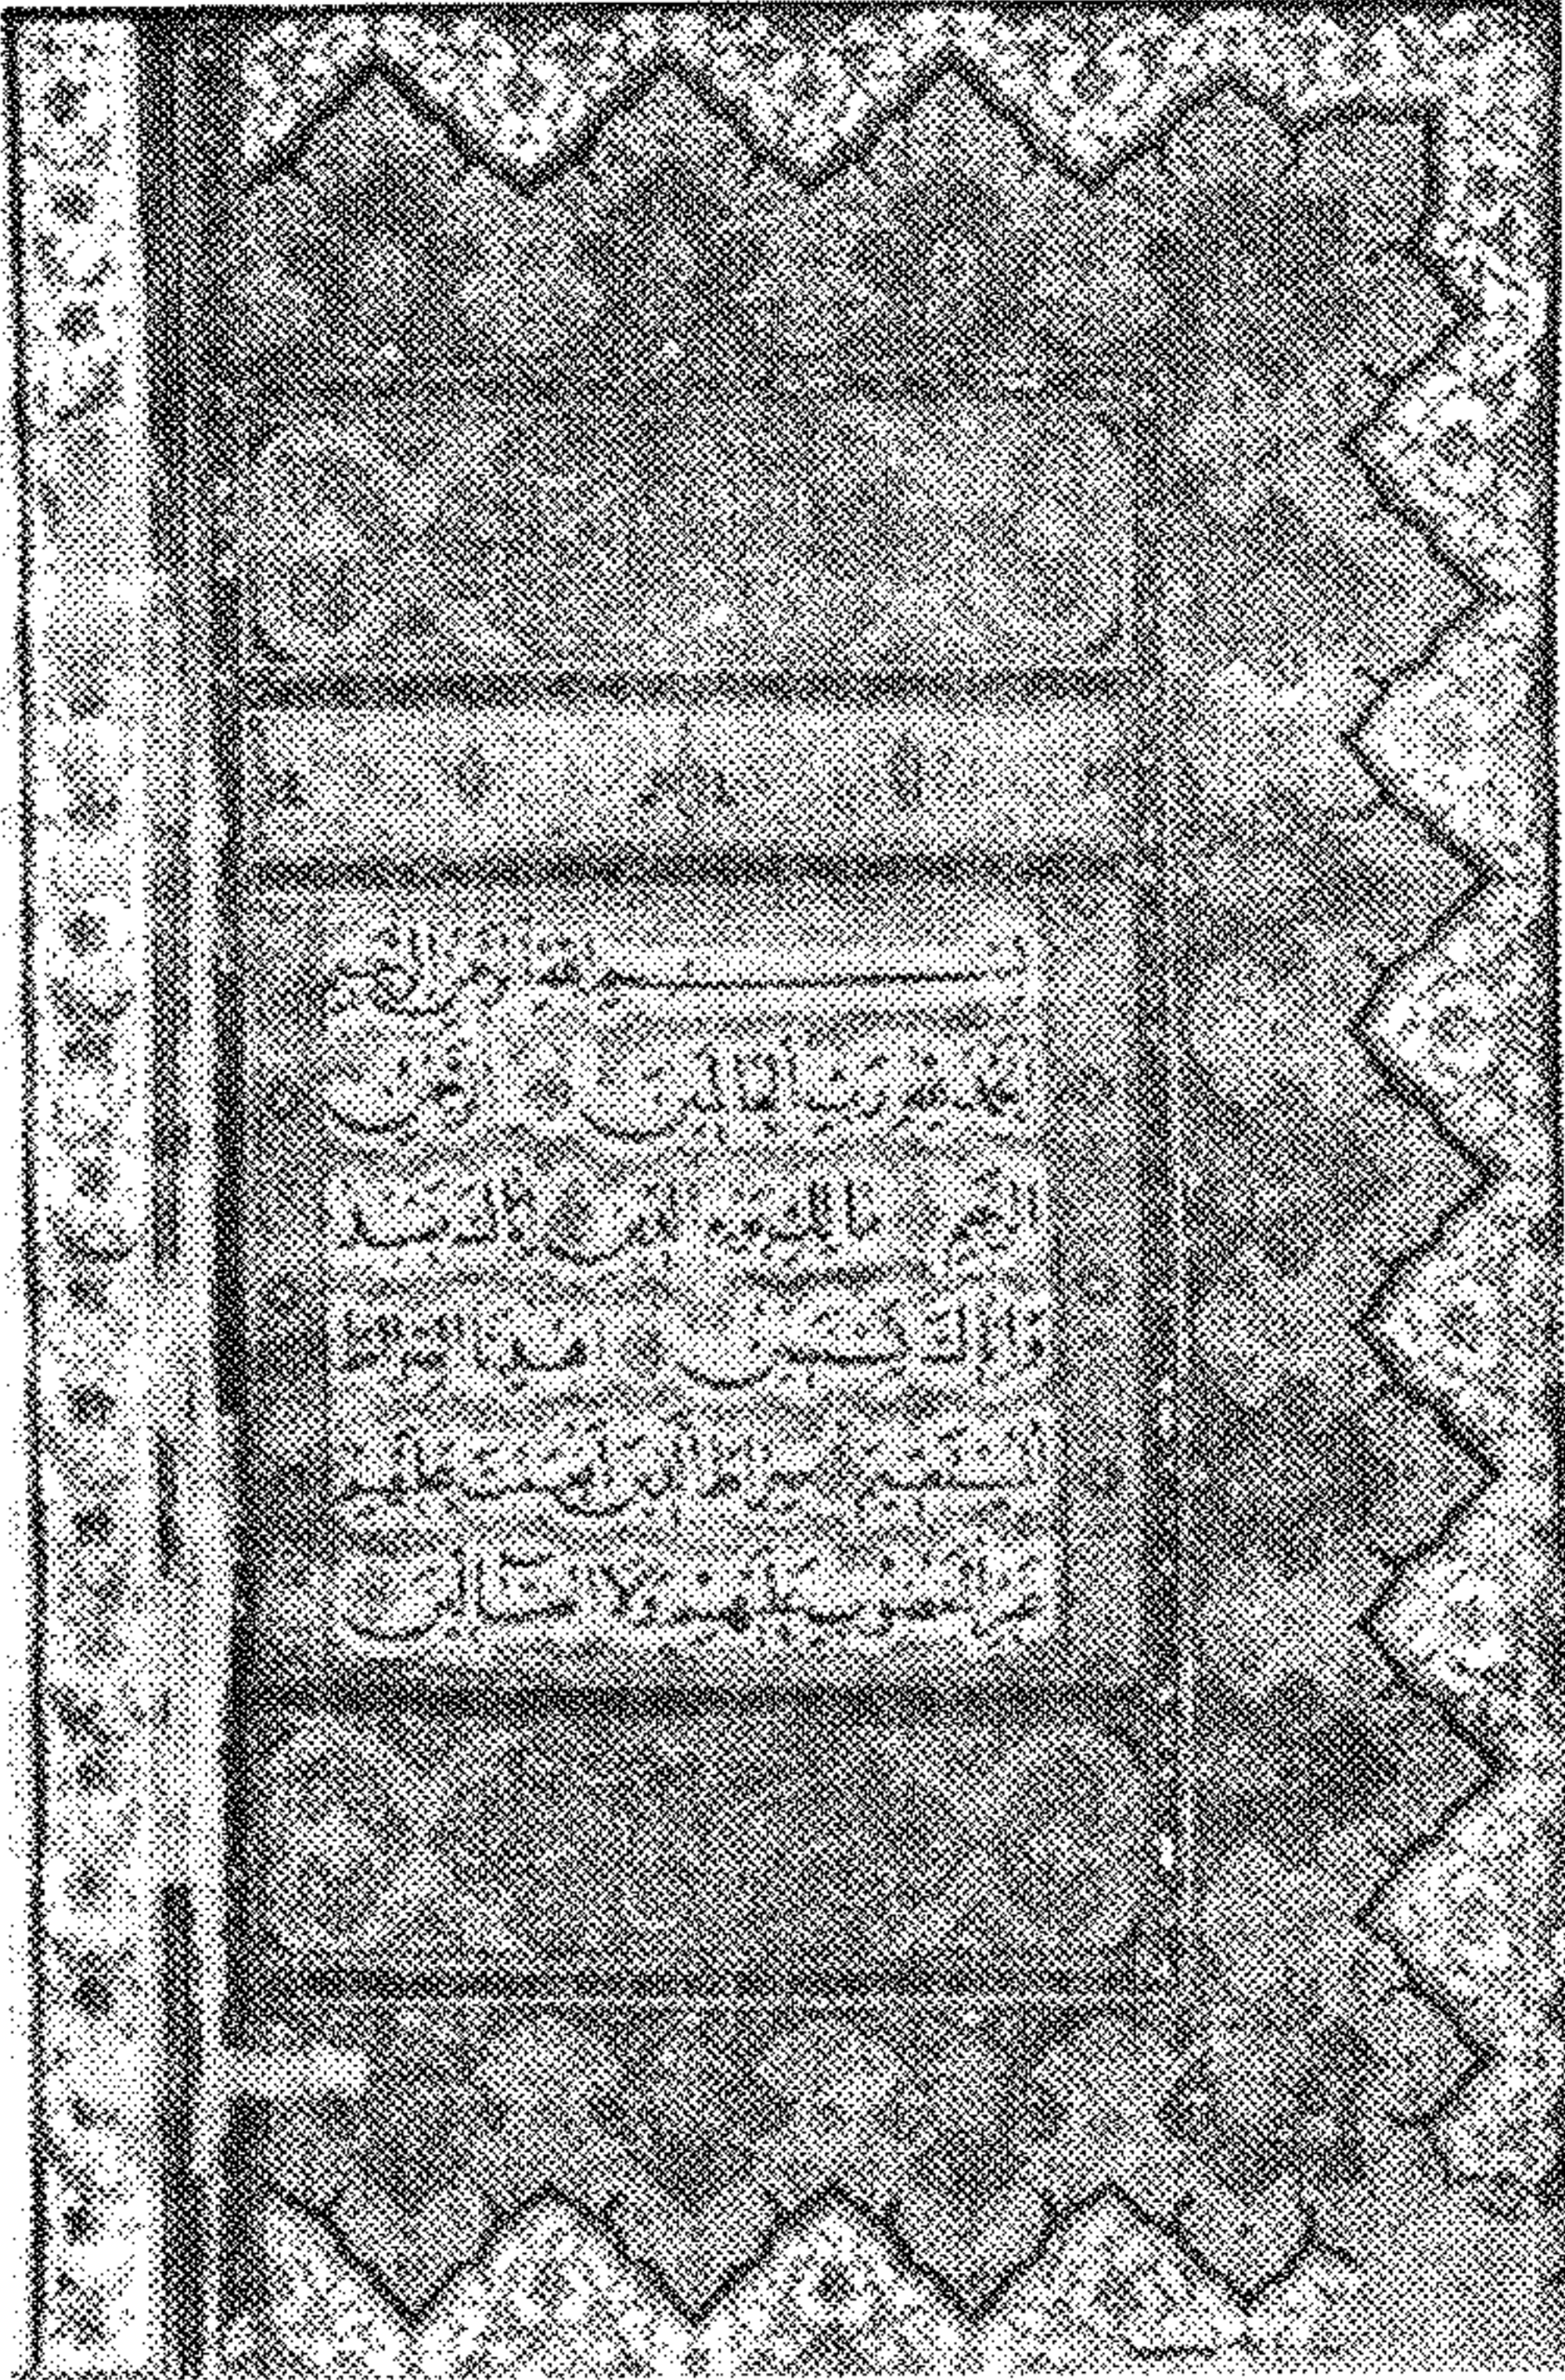 بسم الله الرحمن الرحيم
الحمد لله رب العالمين الرحمن
الرحيم مالك يوم الدين إياك نعبد
وإياك نستعين اهدنا الصراط
المستقيم صراط الذين أنعمت عليهم
غير المغضوب عليهم ولا الضالين